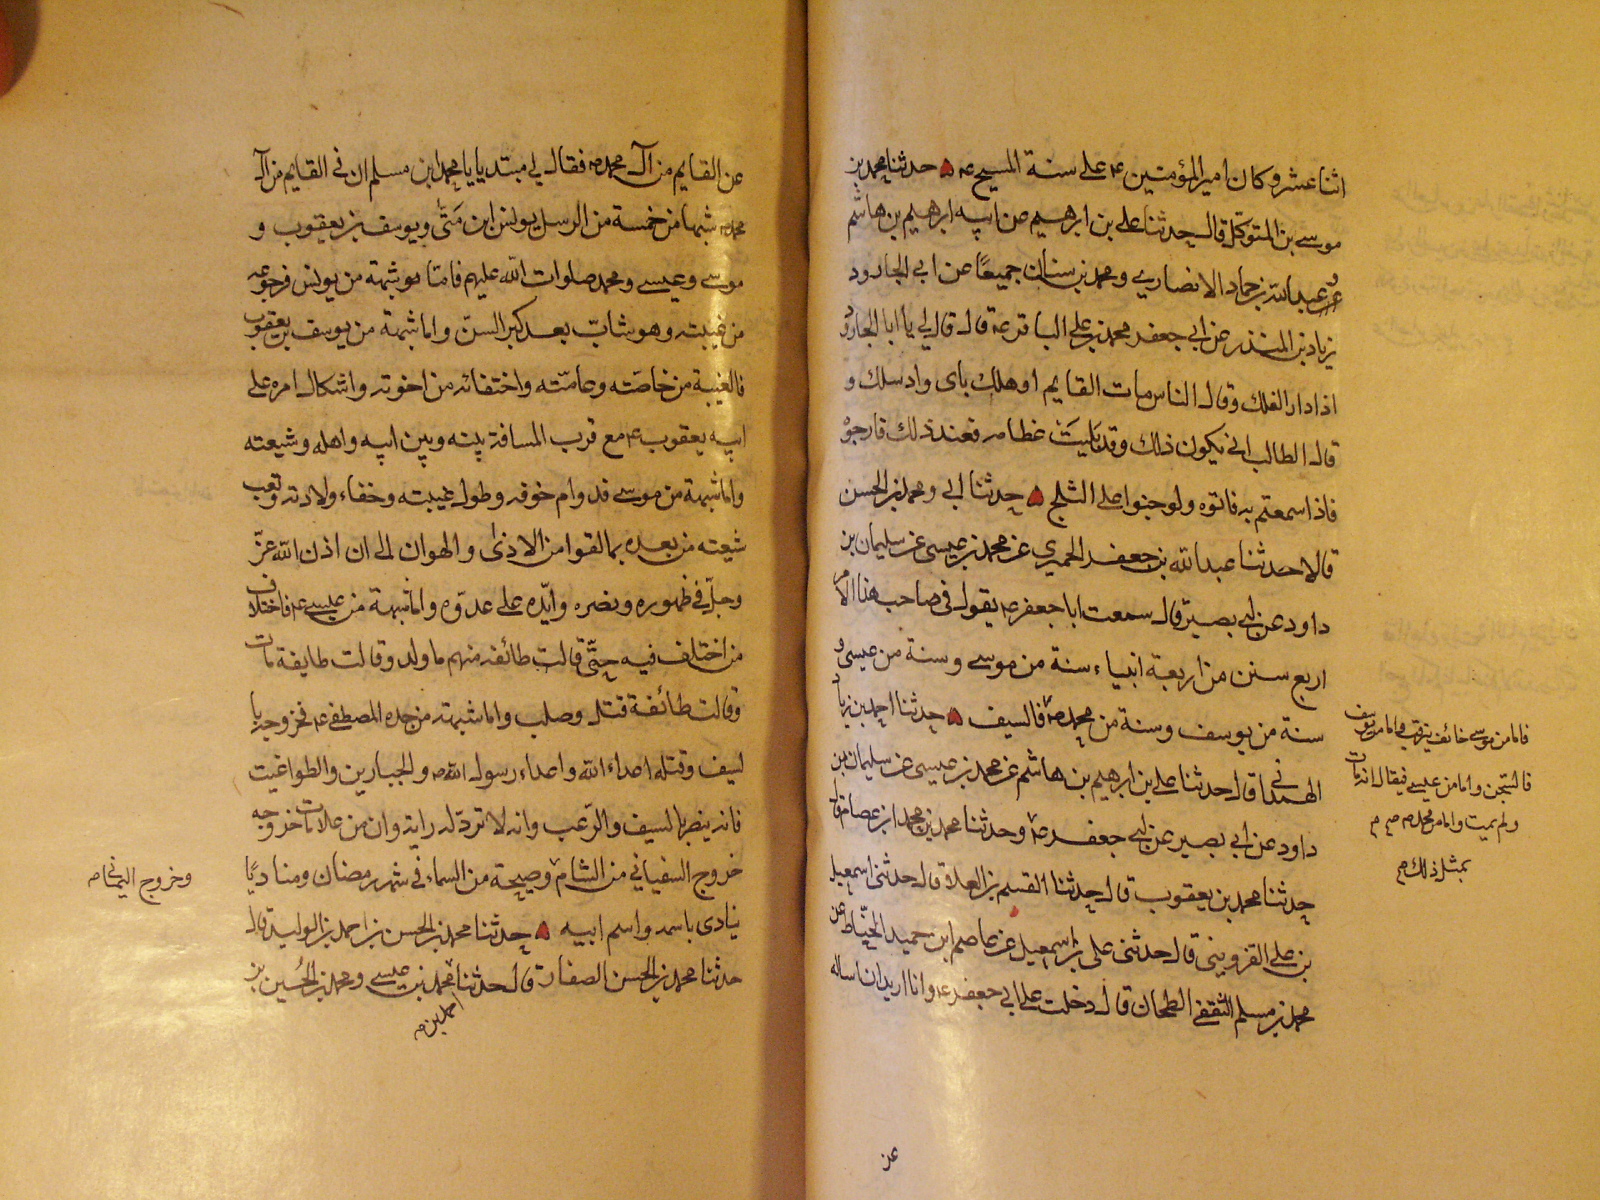 اثنا عشر وكان امير المؤمنين ع على سنة المسيح ع حدثنا محمد بن
موسى بن المتوكل قال حدثنا على بن ابرهيم عن ابيه ابرهيم بن هاشم
عن عبد الله بن حماد الانصارى ومحمد بن سنان جميعًا عن ابى الجارود
زياد بن المنذر عن ابى جعفر محمد بن على الباقر ع قال قال لى يا ابا الجارود
اذا دار الفلك وقال الناس مات القايم او هلك باى واد سلك و
قال الطالب انى يكون ذلك وقد بليت عظامه فعند ذلك فارجوه
فاذا سمعتم به فاتوه ولو حبوا على الثلج حدثنا ابى ومحمد بن الحسن
قالا حدثنا عبد الله بن جعفر الحميرى عن محمد بن عيسى عن سليمان بن
داود عن ابى بصير قال سمعت ابا جعفر ع يقول فى صاحب هذا الامر
اربع سنن من اربعة انبياء سنة من موسى وسنة من عيسى و
سنة من يوسف وسنة من محمد ص فالسيف حدثنا احمد بن زياد
الهمدانى قال حدثنا على بن ابرهيم بن هاشم عن محمد بن عيسى عن سليمان بن
داود عن ابى بصير عن ابى جعفر ع وحدثنا محمد بن محمد ابن عصام قال
حدثنا محمد بن يعقوب قال حدثنا القسم بن العلا قال حدثنى اسمعيل
بن على القزوينى قال حدثنى على بن اسمعيل عن عاصم ابن حميد الحنّاط عن
محمد بن مسلم الثقفى الطحان قال دخلت على ابى جعفر ع وانا اريد ان اساله
فاما من موسى خائف يترقب واما من يوسف
فالسجن واما من عيسى فيقال انه مات
ولم يمت واما من محمد ص
بمثل ذلك
عن
عن القايم من آل محمد ص فقال لى مبتديا يا محمد ابن مسلم ان فى القايم من آل
محمد شبها من خمسة من الرسل يونس ابن مَتّٰى ويوسف بن يعقوب و
موسى وعيسى ومحمد صلوات الله عليهم فامّا شبهة من يونس فرجوعه
من غيبته وهو شابّ بعد كبر السنّ واما شبهة من يوسف بن يعقوب
فالغيبة من خاصّته وعامّته واختفائه من اخوته واشكال امره على
ابيه يعقوب ع مع قرب المسافة بينه وبين ابيه واهله وشيعته
واما شبهة من موسى فدوام خوفه وطول غيبته وخفاء ولادته وتعب
شيعته من بعده بما لقوا من الاذى والهوان الى ان اذن الله عزّ
وجلّ فى ظهوره ونصره وايّده على عدوّه واما شبهة من عيسى ع فاختلاف
من اختلف فيه حتّى قالت طائفه منهم ما ولد وقالت طايفة مات
وقالت طائفة قتل وصلب واما شبهته من جده المصطفى ع فخروجه با
لسيف وقتله اعداء الله واعداء رسول الله ص والجبارين والطواغيت
فانه ينصر بالسيف والرّعب وانه لا تردّ له راية وان من علامات خروجه
خروج السفيانى من الشام وصيحة من السماء فى شهر رمضان ومناديًا
ينادى باسمه واسم ابيه حدثنا محمد بن الحسن بن احمد بن الوليد قال
حدثنا محمد بن الحسن الصفار قال حدثنا محمد بن عيسى ومحمد بن الحُسين بن
احمد بن
وخروج اليمانى